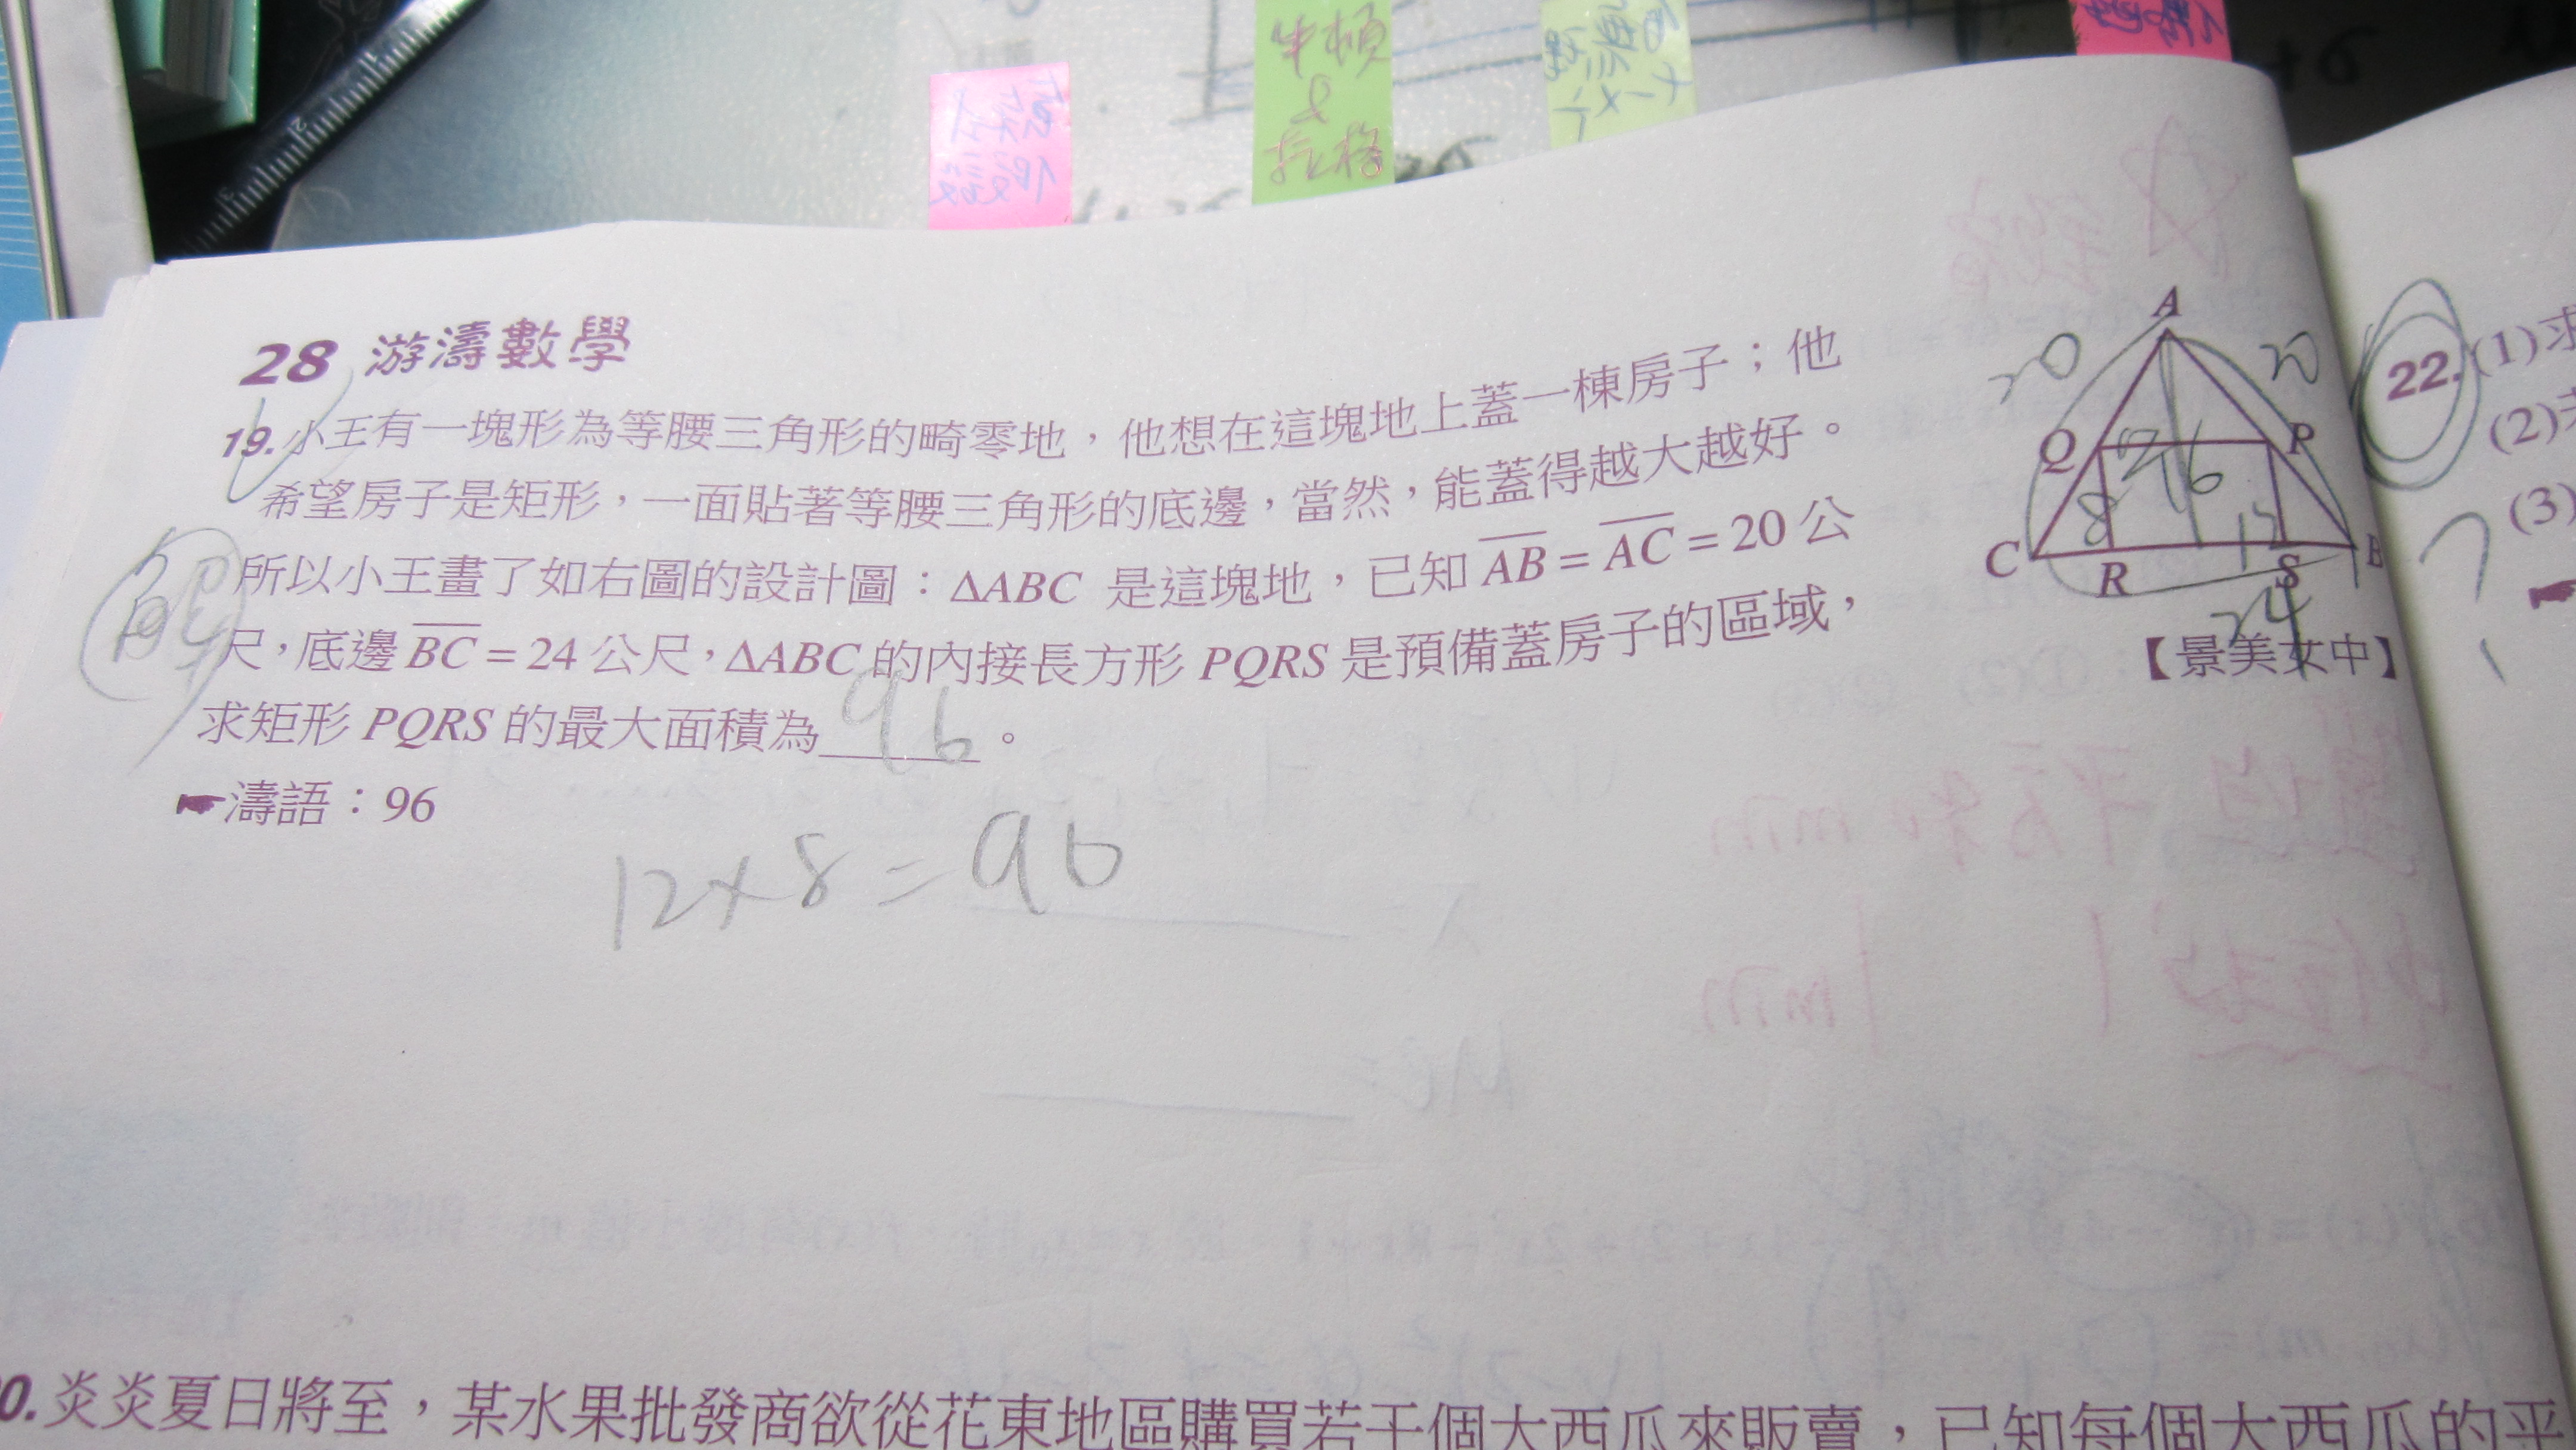 牛頓
&
28 游濤數學
19.小王有一塊形為等腰三角形的畸零地，他想在這塊地上蓋一棟房子；他
希望房子是矩形，一面貼著等腰三角形的底邊，當然，能蓋得越大越好。
所以小王畫了如右圖的設計圖：ΔABC 是這塊地，已知 AB = AC = 20 公
尺，底邊 BC = 24 公尺，ΔABC 的內接長方形 PQRS 是預備蓋房子的區域，
求矩形 PQRS 的最大面積為 96 。
濤語：96
12×8=96
A
20
20
Q
P
96
8
12
C
R
S
B
24
【景美女中】
22.(1)求
(2)
(3)
0.炎炎夏日將至，某水果批發商欲從花東地區購買若干個大西瓜來販賣，已知每個大西瓜的平